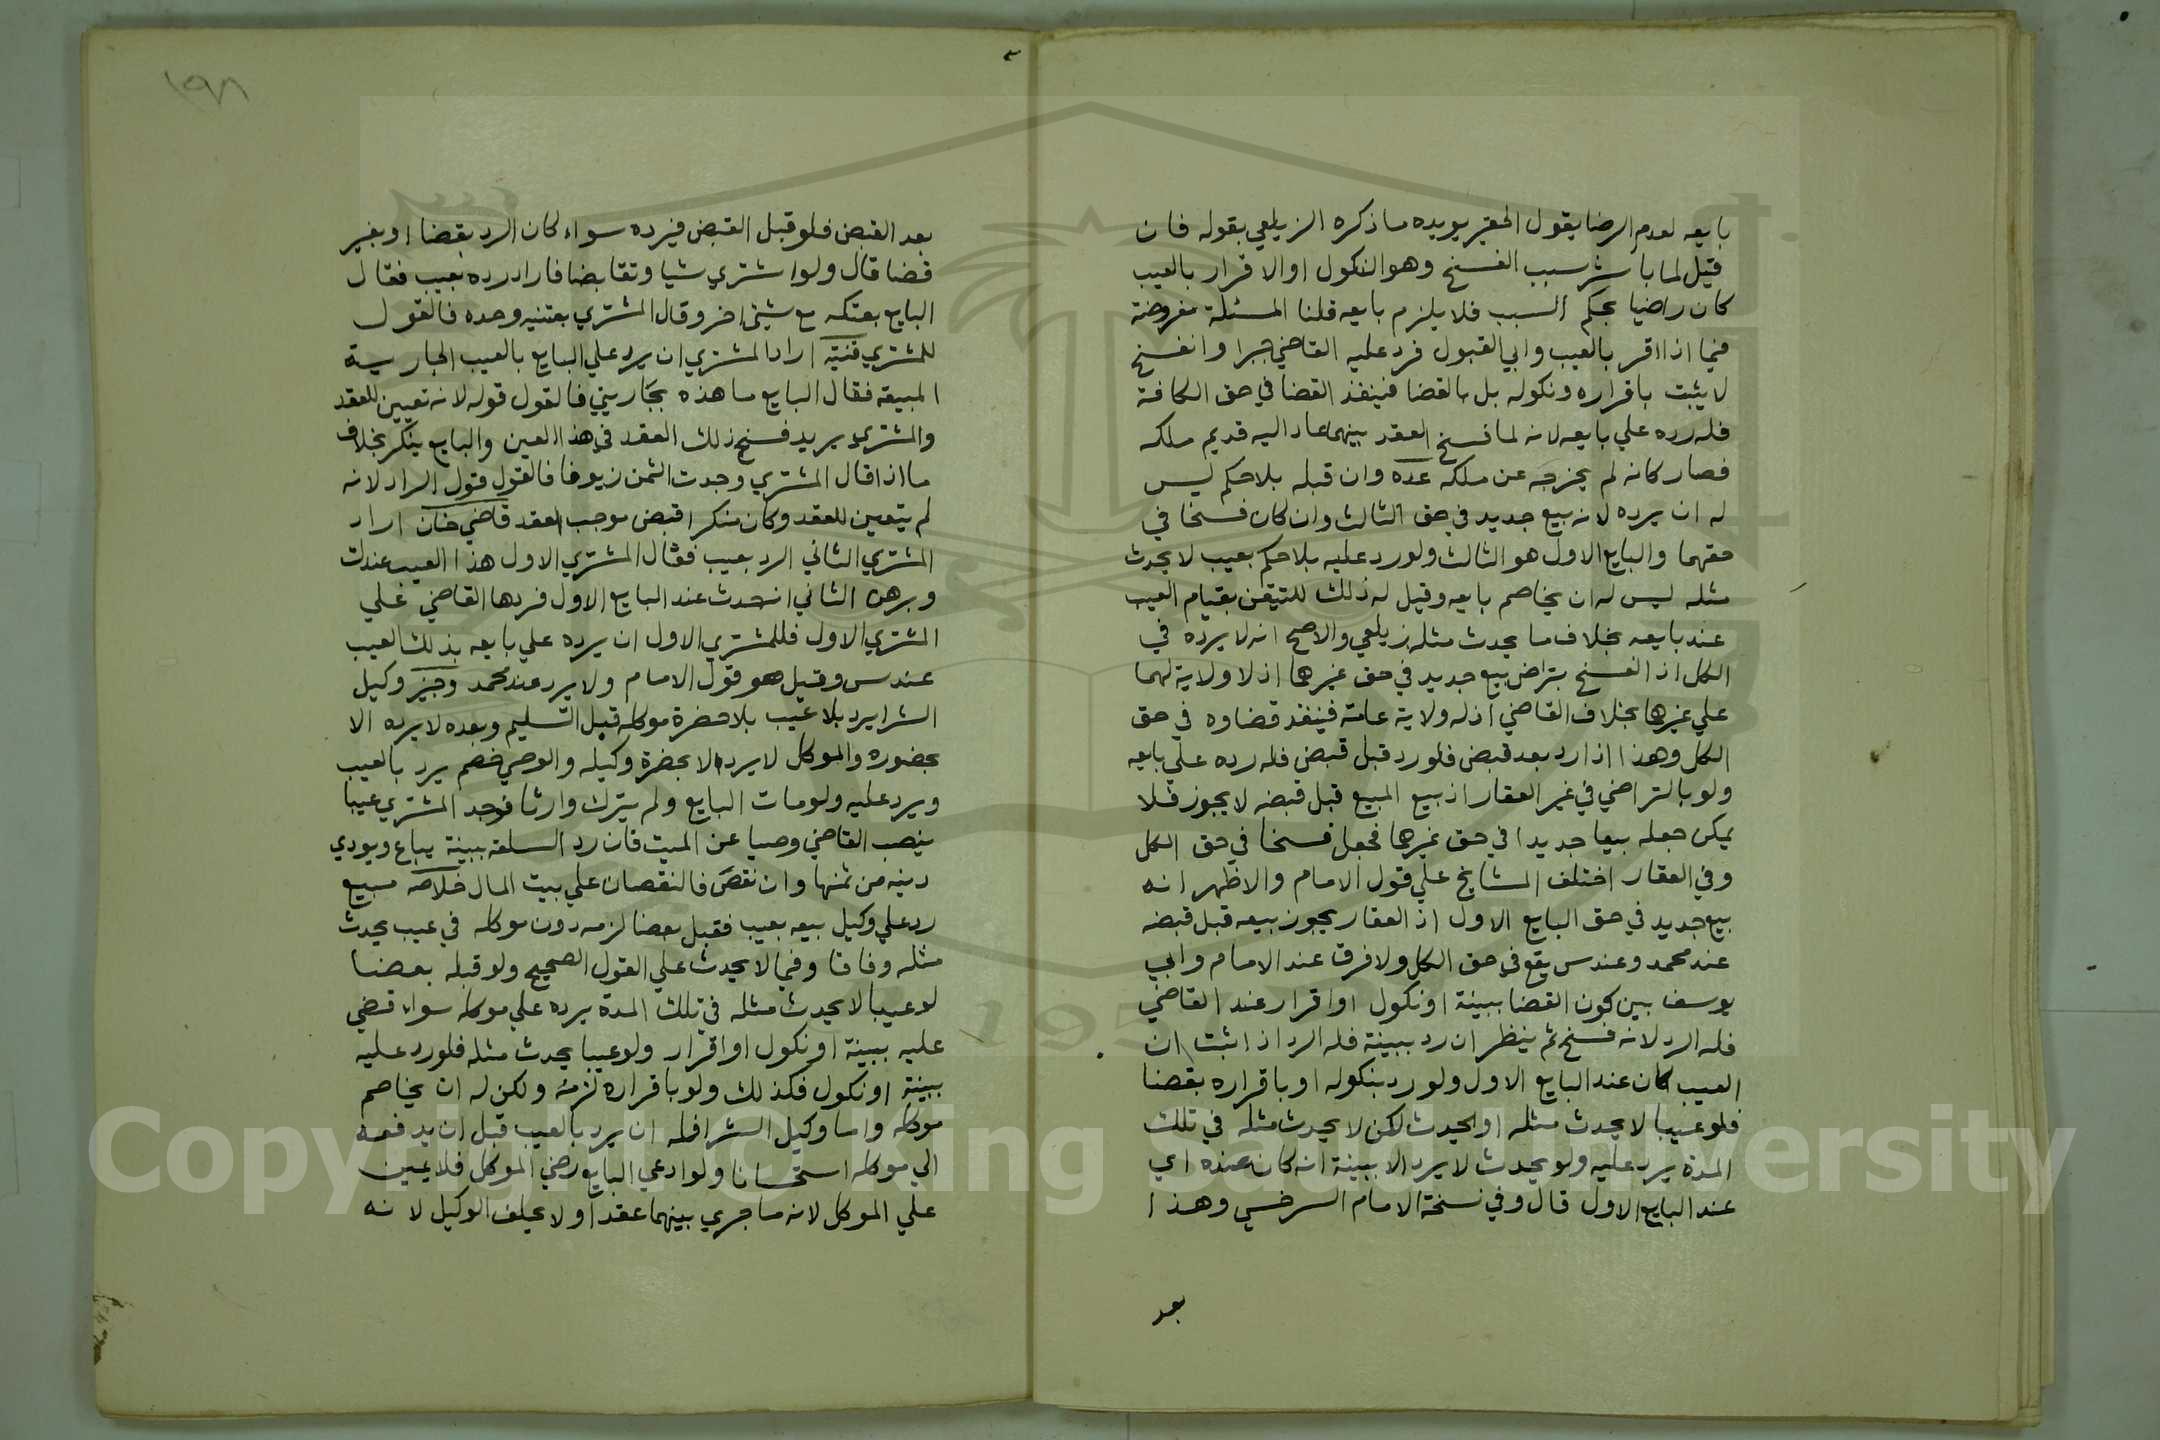 بايعه لعدم الرضا يقول الحقير يويده ما ذكره الزيلعي بقوله فان
قيل لما باشر سبب الفسخ وهو النكول او الاقرار بالعيب
كان راضيا بحكم السبب فلا يلزم بايعه قلنا المسئلة مفروضة
فيما اذا اقر بالعيب وابي القبول فرد عليه القاضي جبرا وانفسخ
لا يثبت باقراره ونكوله بل بالقضا فينفذ القضا في حق الكافة
فله رده علي بايعه لانه لما فسخ العقد بينهما عاد اليه قديم ملكه
فصار كانه لم يخرجه عن ملكه عده وان قبله بلا حكم ليس
له ان يرده لانه بيع جديد في حق الثالث وان كان فسخا في
حقهما والبايع الاول هو الثالث ولو رد عليه بلا حكم بعيب لا يحدث
مثله ليس له ان يخاصم بايعه وقيل له ذلك للتيقن بقيام العيب
عند بايعه بخلاف ما يحدث مثله زيلعي والاصح انه لا يرده في
الكل اذ الفسخ بتراض بيع جديد في حق غيرهما اذ لا ولاية لهما
علي غيرهما بخلاف القاضي اذ له ولاية عامة فينفذ قضاوه في حق
الكل وهذا اذا رد بعد قبض فلو رد قبل قبض فله رده علي بايعه
ولو بالتراضي في غير العقار اذ بيع المبيع قبل قبضه لا يجوز فلا
يمكن جعله بيعا جديدا في حق غيرهما فجعل فسخا في حق الكل
وفي العقار اختلف المشايخ علي قول الامام والاظهر انه
بيع جديد في حق البايع الاول اذ العقار يجوز بيعه قبل قبضه
عند محمد وعند س يقع في حق الكل ولا فرق عند الامام وابي
يوسف بين كون القضا ببينة او نكول او اقرار عند القاضي
فله الرد لانه فسخ ثم ينظر ان رد ببينة فله الرد اذا ثبت ان
العيب كان عند البايع الاول ولو رد بنكوله او باقراره بقضا
فلو عيبا لا يحدث مثله او يحدث لكن لا يحدث مثله في تلك
المدة يرد عليه ولو يحدث لا يرد الا ببينة انه كان عنده اي
عند البايع الاول قال وفي نسخة الامام السرخسي وهذا
بعد
١٩٨
بعد القبض فلو قبل القبض فيرده سواء كان الرد بقضا او بغير
قضا قال ولو اشتري شيا وتقابضا فاراد رده بعيب فقال
البايع بعتكه مع شيئ اخر وقال المشتري بعتنيه وحده فالقول
للمشتري قنية اراد المشتري ان يرد علي البايع بالعيب الجارية
المبيعة فقال البايع ما هذه بجاريتي فالقول قوله لانه تعيين للعقد
والمشتري يريد فسخ ذلك العقد في هذا العين والبايع ينكر بخلاف
ما اذا قال المشتري وجدت الثمن زيوفا فالقول قول الراد لانه
لم يتعين للعقد وكان منكرا قبض موجب العقد قاضي خان اراد
المشتري الثاني الرد بعيب فقال المشتري الاول هذا العيب عندك
وبرهن الثاني انه حدث عند البايع الاول فردها القاضي علي
المشتري الاول فللمشتري الاول ان يرده علي بايعه بذلك العيب
عند س وقيل هو قول الامام ولا يرد عند محمد وجيز وكيل
الشرا يرد بلا عيب بلا حضرة موكله قبل التسليم وبعده لا يرده الا
بحضوره والموكل لا يرد الا بحضرة وكيله والوصي خصم يرد بالعيب
ويرد عليه ولو مات البايع ولم يترك وارثا فوجد المشتري عيبا
ينصب القاضي وصيا عن الميت فان رد السلعة ببينة يباع ويودي
دينه من ثمنها وان نقص فالنقصان علي بيت المال خلاصه مبيع
رد علي وكيل بيعه بعيب فقبل بعضا لزمه دون موكله في عيب يحدث
مثله وفاقا وفيما لا يحدث علي القول الصحيح ولو قبله بعضا
لو عيبا لا يحدث مثله في تلك المدة يرده علي موكله سواء قضي
عليه ببينة او نكول او اقرار ولو عيبا يحدث مثله فلو رد عليه
ببينة او نكول فكذلك ولو باقراره لزمه ولكن له ان يخاصم
موكله واما وكيل الشرا فله ان يرد بالعيب قبل ان يدفعه
الي موكله استحسانا ولو ادعي البايع رضي الموكل فلا يمين
علي الموكل لانه ما جري بينهما عقد او لا يحلف الوكيل لانه
Copyright © King Saud University